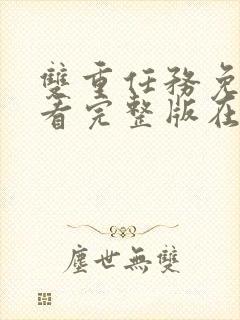 雙重任務免
看完整版在
塵世無雙